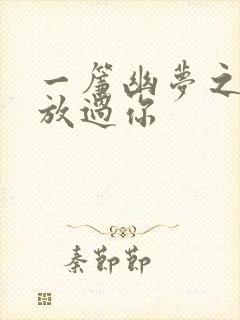 一簾幽夢之
放過你
秦節節